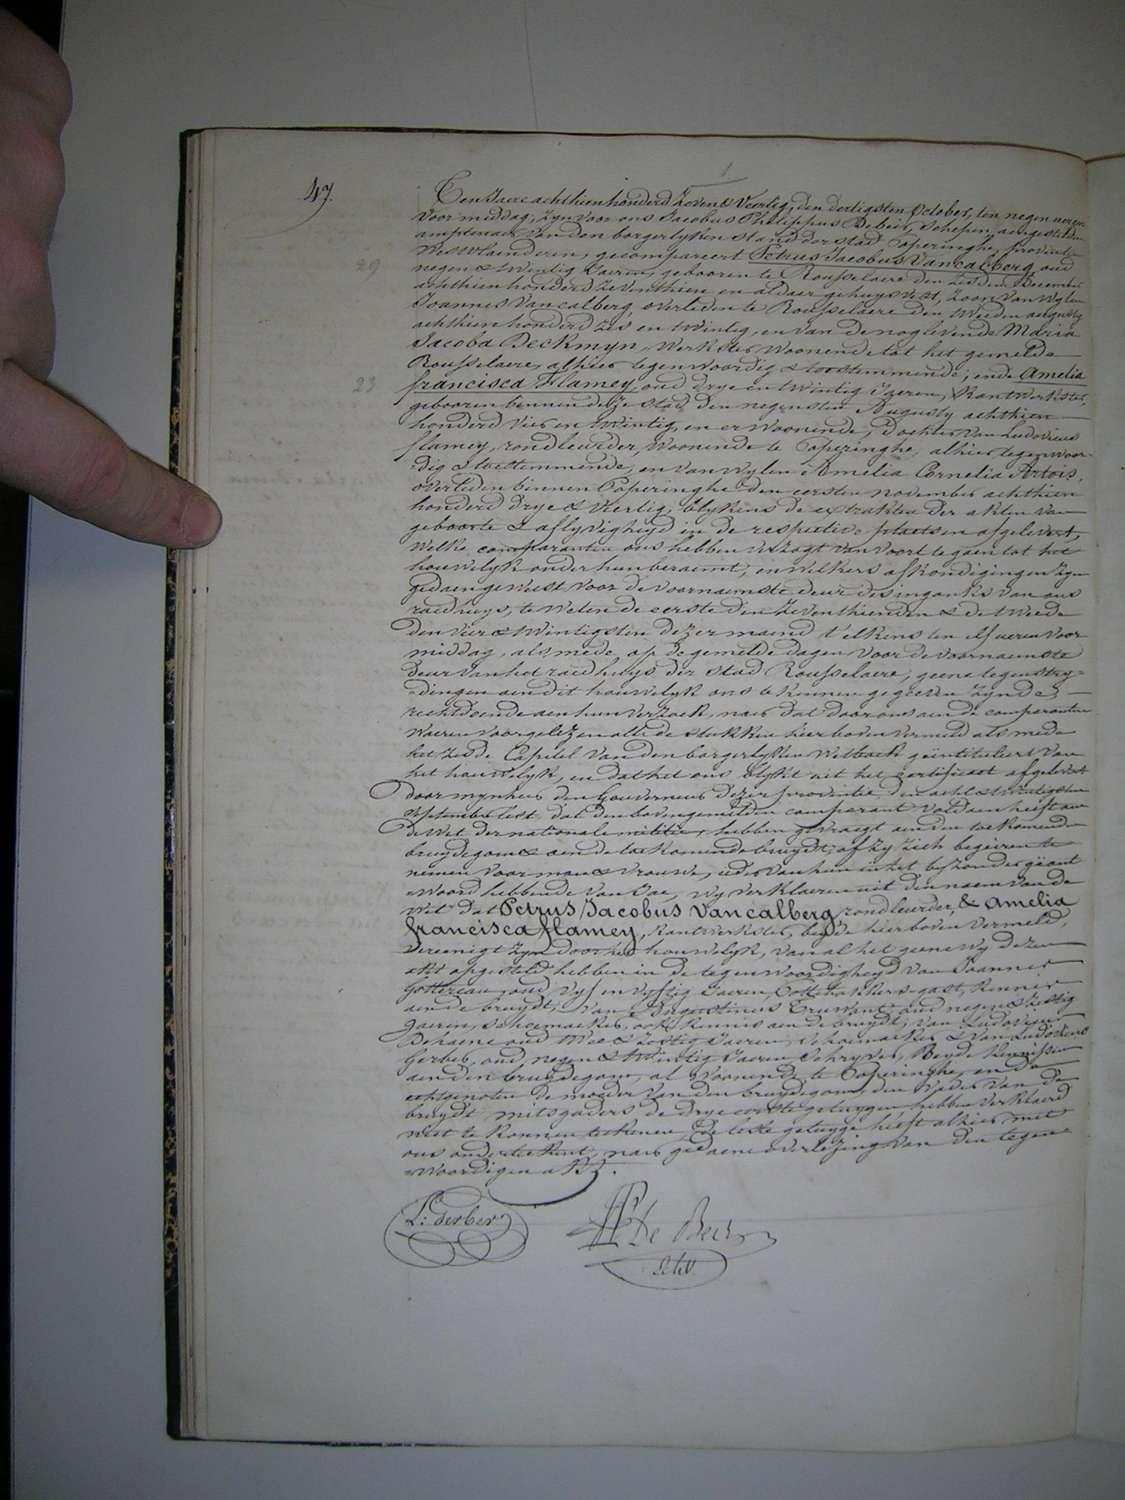 47.
Ten Jaere achthien honderd Zeven & Veertig, den dertigsten October, ten negen ueren
Voor middag, zyn voor ons Jacobus Philippus Debeir, Schepen, aengestelden
ampteneer van den borgerlyken stand der stad Poperinghe, provincie
Westvlaenderen, gecompareert Petrus Jacobus Vancalberg, oud
29
negen & twintig Jaeren, gebooren te Rousselaere den zesden December
achthien honderd zeventhien en aldaer gehuysvest, zoon van wylen
Joannes Vancalberg, overleden te Rousselaere den tweeden augusty
achthien honderd zes en twintig, en van de nog levende Maria
Jacoba Deckmyn, werkster woonende tot het gemelde
Rousselaere, alhier tegenwoordig & toestemmende; ende Amelia
23
francisca Flamey, oud drye en twintig Jaeren, Kantwerkster,
gebooren binnen deze stad den negensten Augusty achthien
honderd vier en twintig, en er woonende, Dochter van Ludovicus
flamey, rondleurder, woonende te Poperinghe, alhier tegenwoor-
dig & toestemmende, en van wylen Amelia Cornelia Artois,
overleden binnen Poperinghe den eersten november achthien
honderd drye & veertig, blykens de extrakten der akten van
geboorte & aflyvigheyd in de respective plaetsen afgelevert,
Welke comparanten ons hebben verzogt van voort te gaen tot het
houwelyk onder hun beraemt, en welkers afkondigingen zyn
gedaen geweest voor de voornaemste deure des ingangs van ons
raedhuys, te weten de eerste den zeventhienden & de tweede
den vier & twintigsten dezer maend t'elkens ten elf ueren voor
middag, als mede, op de gemelde dagen voor de voornaemste
deur van het raedhuys der stad Rousselaere; geene tegenstry-
dingen aen dit houwelyk ons te kennen gegeven zynde,
rechtdoende aen hun verzoek, naer dat door ons aen de comparanten
waeren voorgelezen alle de stukken hier boven vermeld als mede
het zesde Capitel van den borgerlyken wetboek geïntituleert van
het houwelyk, en dat het ons blykt uit het certificaet afgelevert
door mynheer den Gouverneur dezer provintie, den acht & twintigsten
september lest, dat den bovengemelden comparant voldaen heeft aen
de Wet der nationale militie, hebben gevraegt aen den toekomenden
bruydegom & aen de toekomende bruydt, of zy zich begeiren te
nemen voor man & vrouwe, ieder van hun in het byzonder geant-
woord hebbende van Jae, wy verklaeren uit den naem van de
Wet dat Petrus Jacobus Vancalberg, rondleurder, & Amelia
francisca flamey, kantwerkster, beyde hier boven vermeld,
vereenigt zyn door het houwelyk, van al het geene wy dezen
akt opgesteld hebben in de tegenwoordigheyd van Joannes
oud vyf en vyftig Jaeren, kennis
aen de bruydt, van Augustinus oud negen & zestig
Jaeren, schoemaeker, ook kennis aen de bruydt, van Ludovicus
Dehaene oud twee & zestig Jaeren, schoemaeker & van Ludovicus
Gerber, oud negen & twintig Jaeren Schryver, Beyde kennissen
aen den bruydegom, al woonende te Poperinghe, en de
echtgenoten de moeder van den bruydegom, den vader van de
bruydt mitsgaders de drye eerste getuygen hebben verklaerd
niet te konnen teekenen, de leste getuyge heeft alhier met
ons onderteekent, naer gedaene overlezing van den tegen-
woordigen akt.
L: Gerber
JP De Beir
Schn.